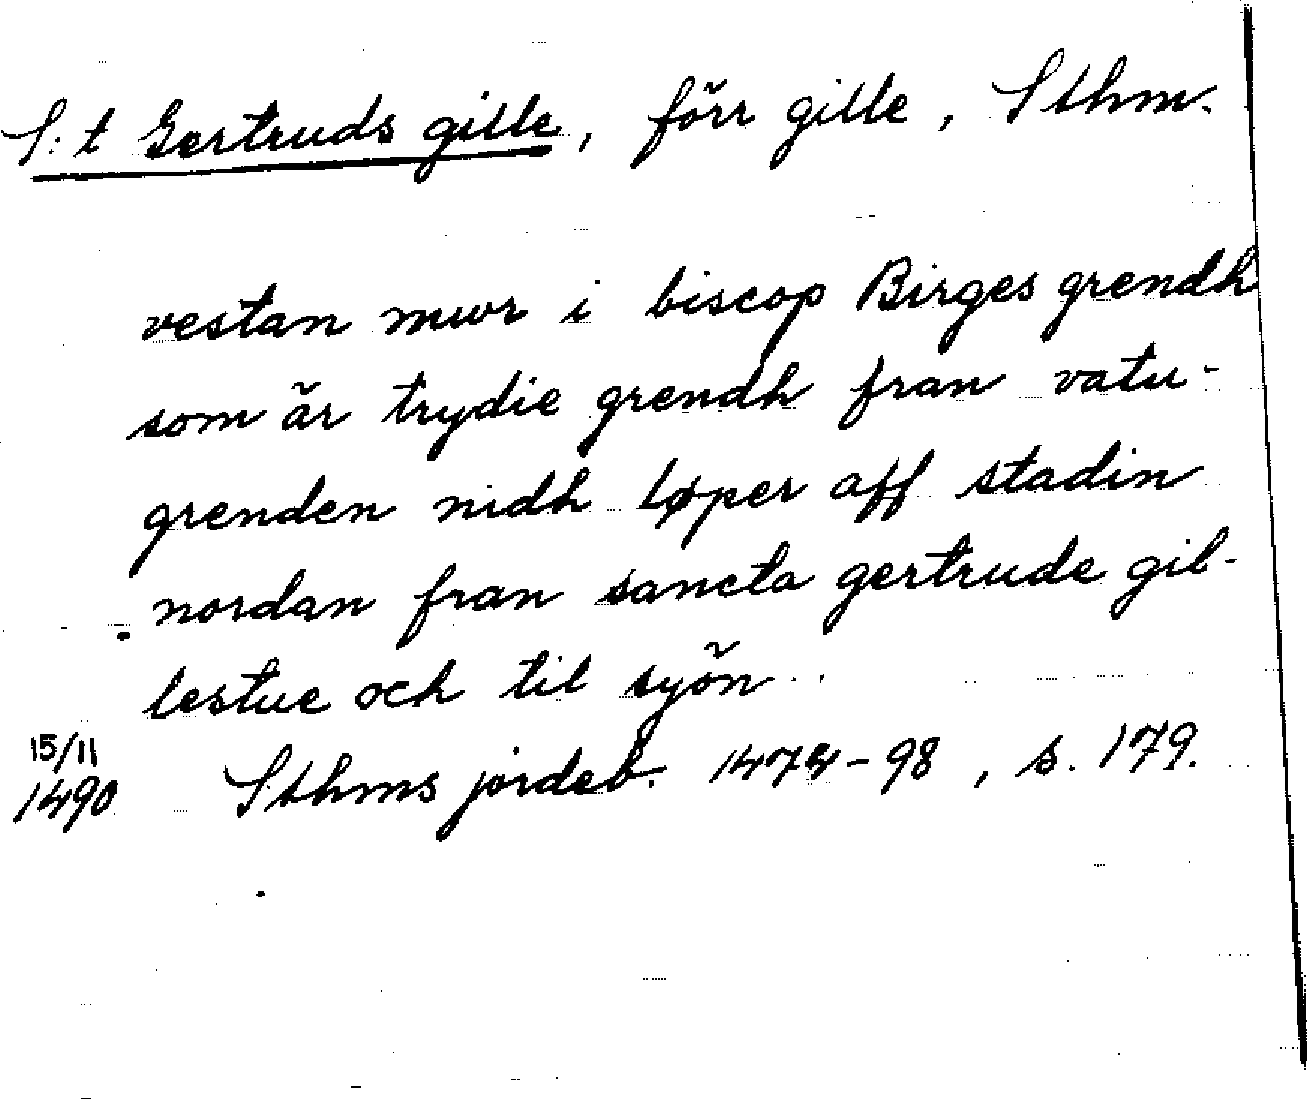 S:t Gertruds gille, förr gille, Sthm.
vestan mwr i biscop Birges grendh
som är trydie grendh fran vatu-
grenden nidh løper aff stadin
nordan fran sancta gertrude gil-
lestue och til syön
15/11
1490 Sthms jordeb. 1474-98, s. 179.